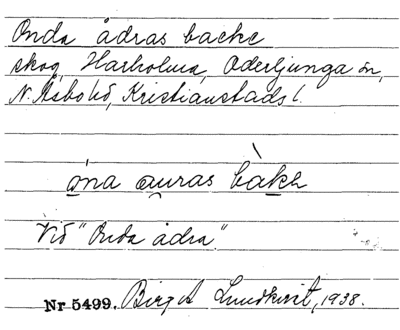 Onda ådras backe
skog, Harholma, Oderljunga sn,
N. Åsbo hd, Kristianstads l.
ó̱na au̯ras bàkə
Vid "Onda ådra".
Nr 5499. Birgit Lundkvist, 1938.